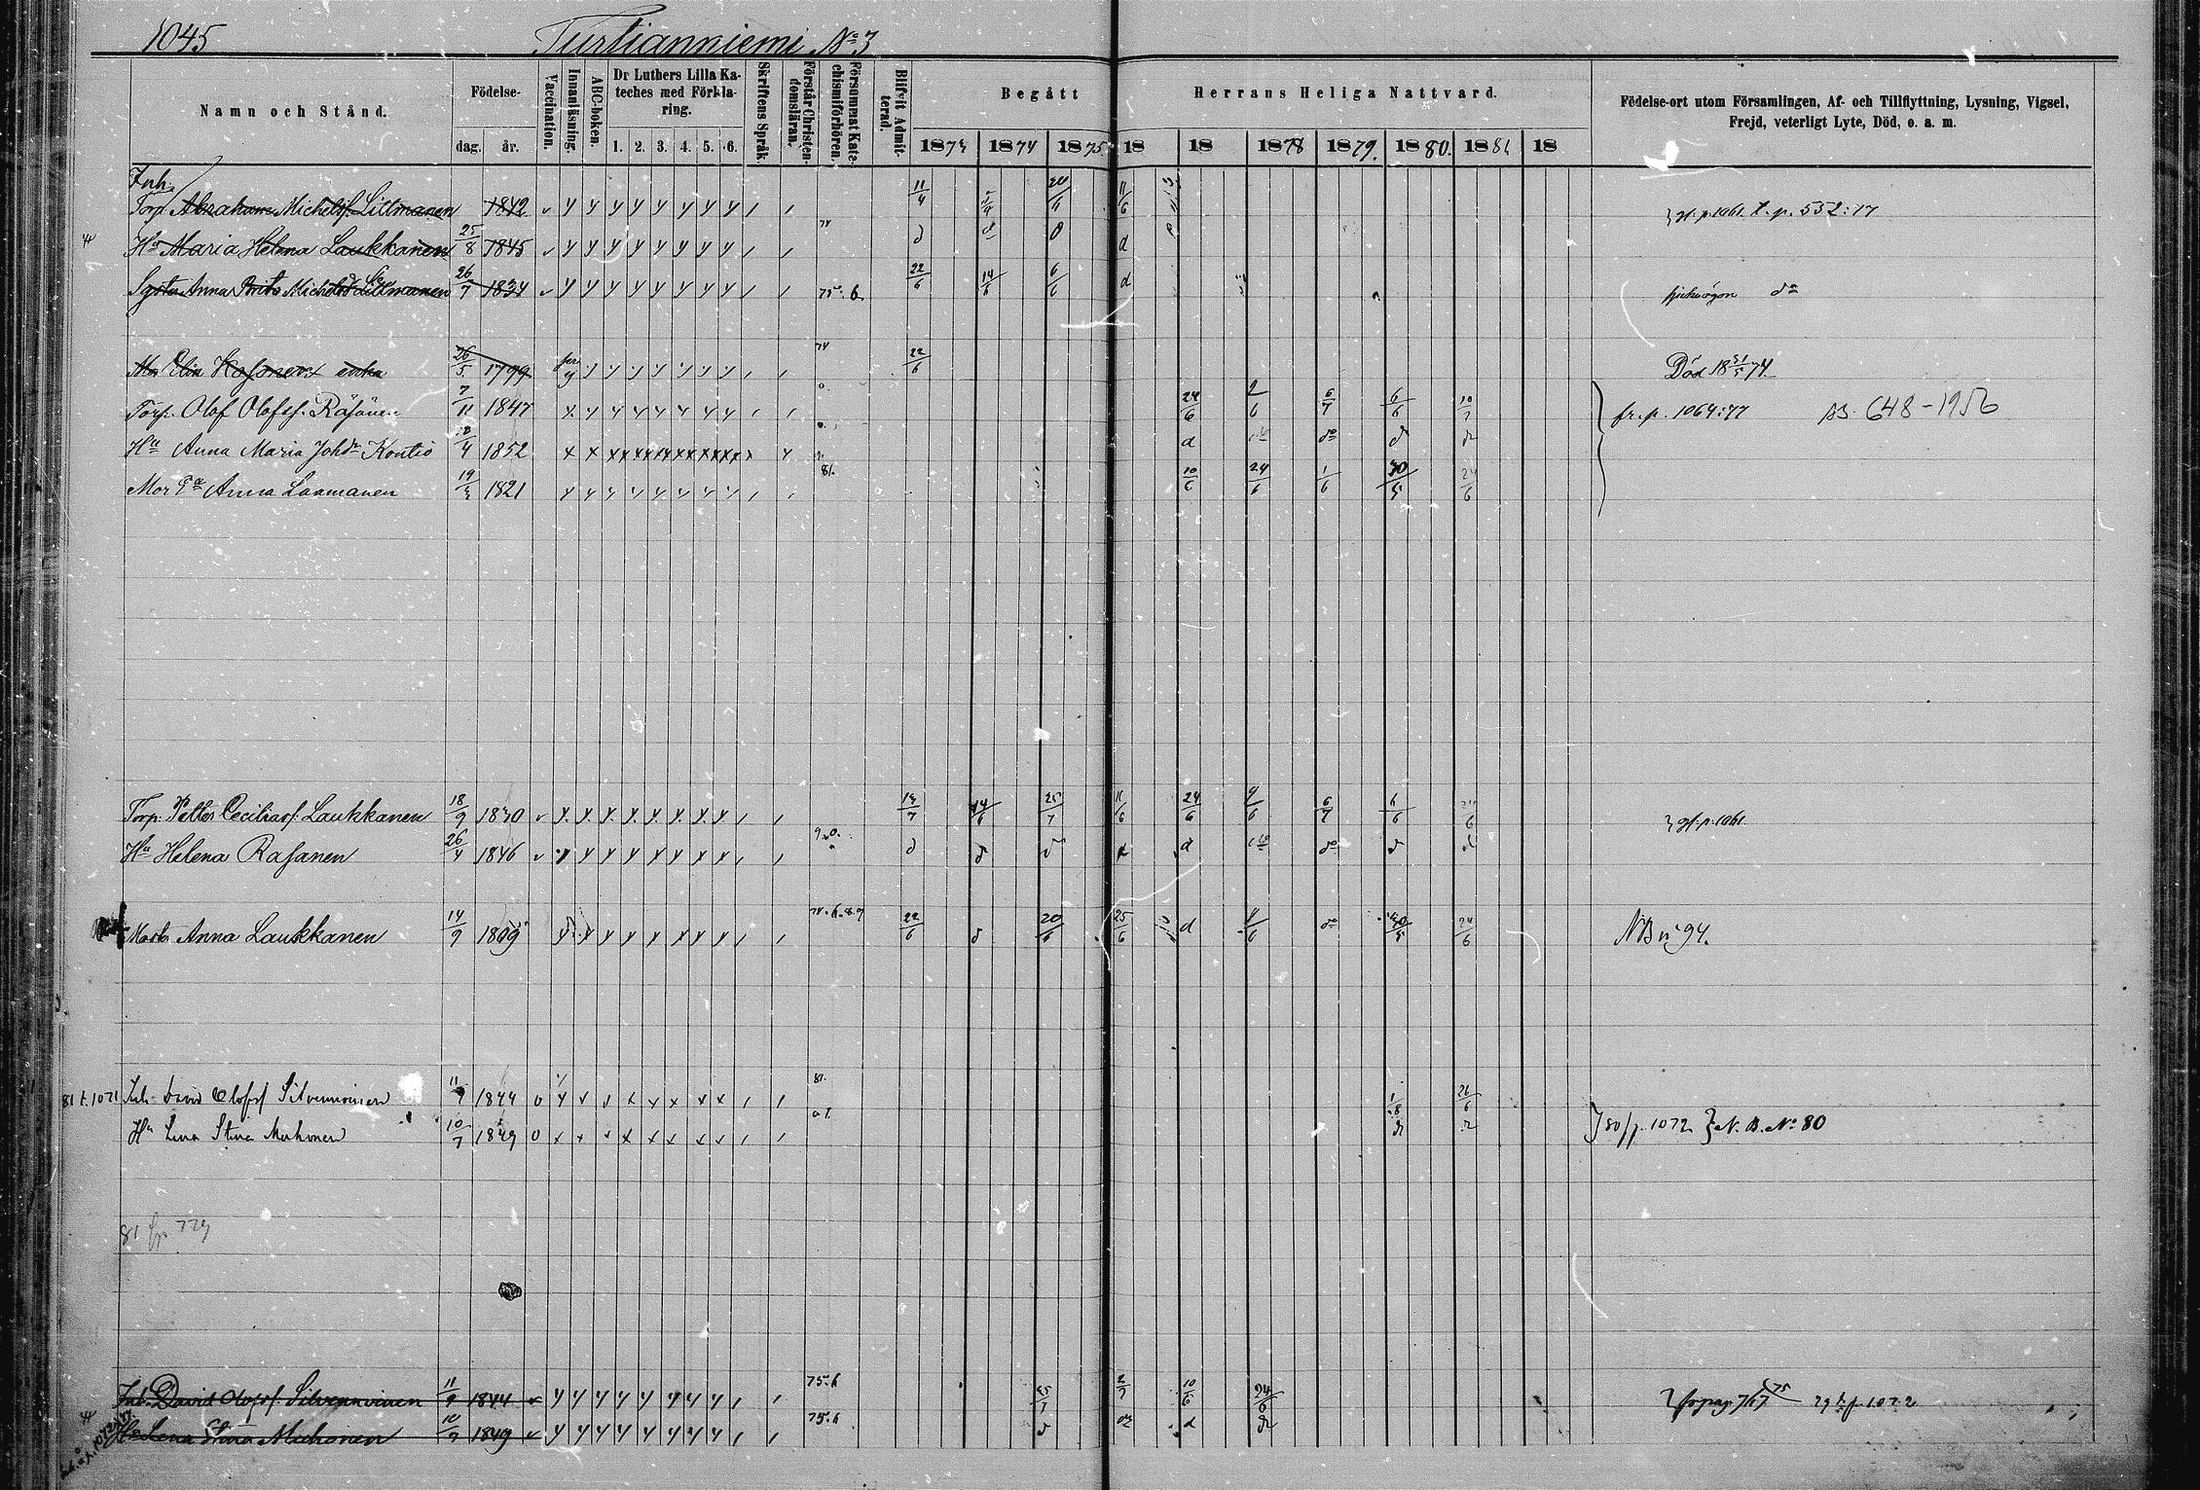 1045 Turtianniemi № 3
Namn och Stånd. Födelse- dag. år. Vaccination. Innanläsning. ABC-boken. Dr Luthers Lilla Kateches med Förklaring. 1. 2. 3. 4. 5. 6. Skriftens Språk. Förstår Christendomsläran. Försummat Katechismiförhören. Blifvit Admitterad. Begått Herrans Heliga Nattvard. 1873 1874 1875 18 18 1878 1879. 1880. 1881 18 Födelse-ort utom Församlingen, Af- och Tillflyttning, Lysning, Vigsel, Frejd, veterligt Lyte, Död, o. a. m.
Inh.
Torp. Abraham Michelsf. Lillmanen 1842 11/4 20/6 11/6 gl. p. 1061. t. p. 552:77
Hu Maria Helena Laukkanen 25/8 1845 74 d d d d
Syster Anna Brita Michelsd. Lillmanen 26/7 1834 75. 6. 22/6 14/6 6/6 d do
Mor Elin Kosonen enka 26/5 1799 74 22/6 Död 18 31/5 74.
Torp. Olof Olofsf. Räsänen 7/11 1847 24/6 2/6 6/7 6/6 10/7 fr. p. 1064:77 BS. 648-1956
Hu Anna Maria Johsdr Kontio 12/4 1852 d do do d d
Mor Anna Laamanen 19/3 1821 81. 10/6 24/6 1/6 30/5 24/6
Torp. Petter Ceciliasf. Laukkanen 18/9 1830 13/7 14/6 25/7 11/6 24/6 9/6 6/7 6/6 24/6 gl. p. 1061.
Hu Helena Rasanen 26/4 1846 d d d d d do do d d
Anna Laukkanen 14/9 1809 74. 6. 8. 9 22/6 d 20/6 25/6 d 9/6 do 30/5 24/6 NB no 94.
81 t. 1071 Inh. David Olofsf Silvennoinen 11/9 1844 81. 1/8 26/6
Hu Lena Stina Muhonen 10/7 1849 80 f. p. 1072 N. B. No 80
81 fr 779
Inh. David Olofsf. Silvennoinen 11/9 1844 75. 6 25/7 2/7 10/6 24/6 fr pag 767 75 79 t. p. 1072
Hu Lena Stina Muhonen 10/7 1849 75. 6 d d